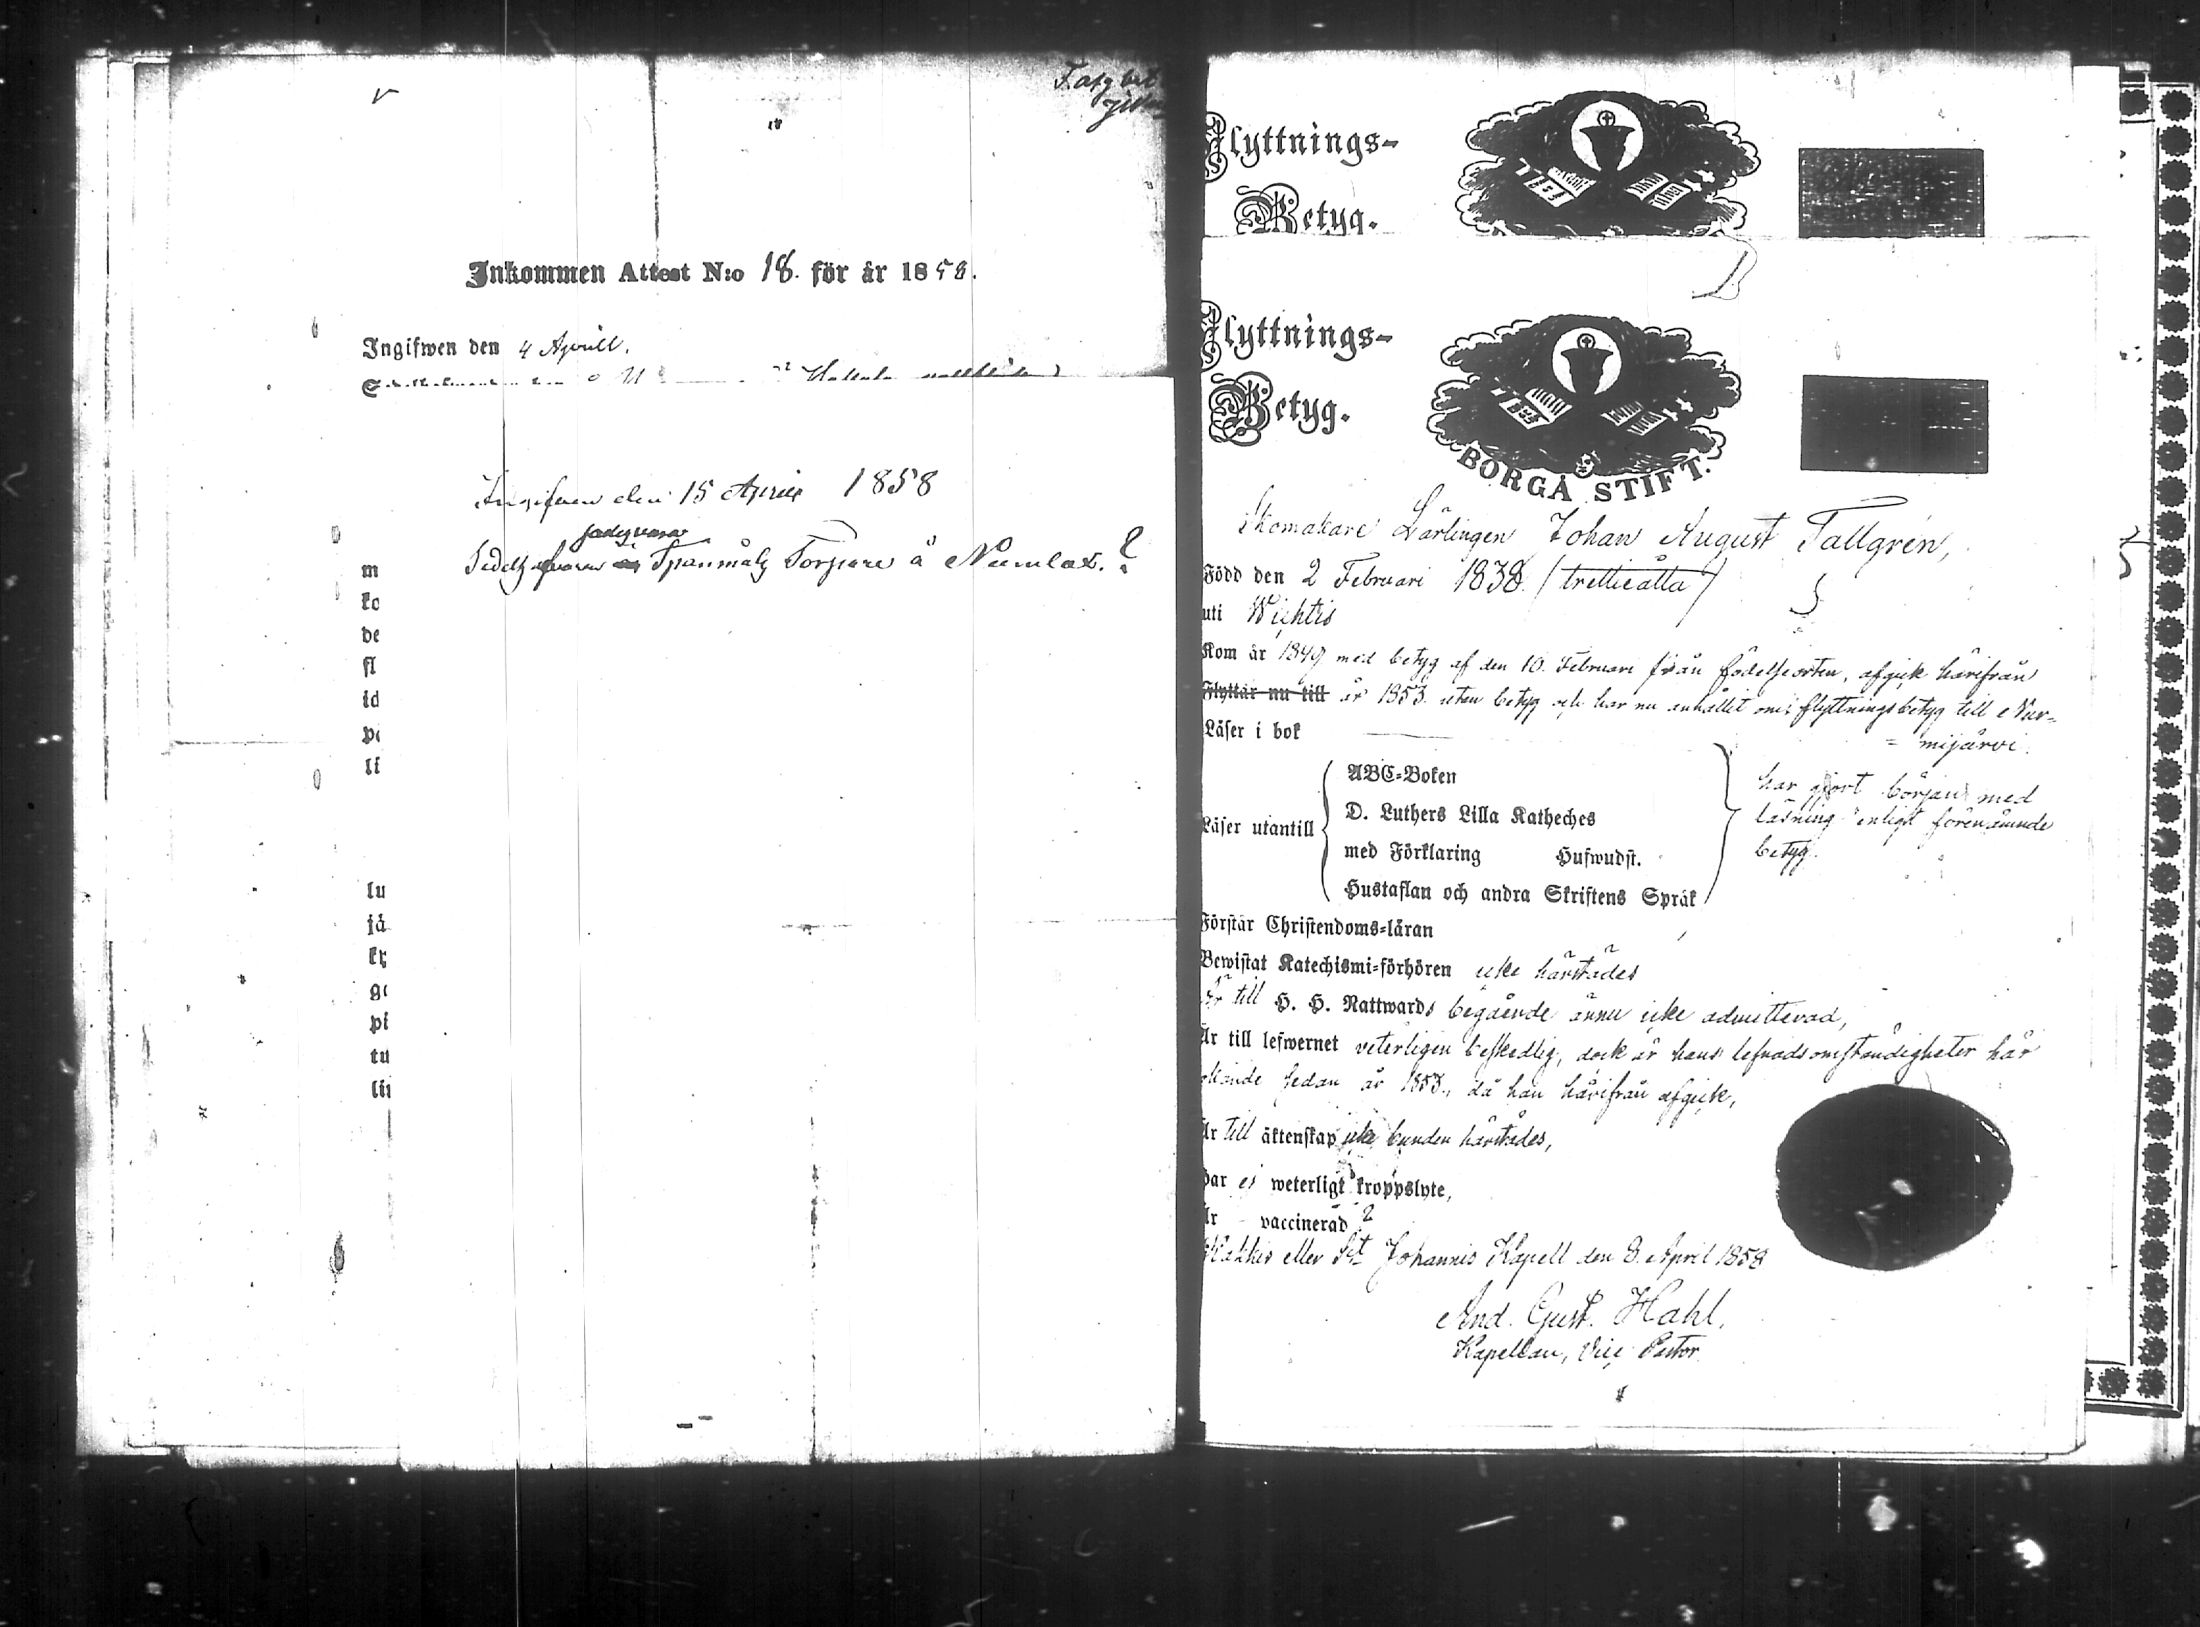 Inkommen Attest N:o 18. för år 1858.
Ingifwen den 4 Aprill.
Ingifven den 15 April 1858
Spanmåls Torpare å Numlax. ?
m
ko
de
fl
id
lu
jä
pi
tu
Flyttnings-
Betyg.
Flyttnings-
Betyg.
BORGÅ STIFT.
Skomakare Lärlingen Johan August Tallgrén,
Född den 2 Februari 1838. (trettieåtta)
uti Wichtis
Kom år 1849 med betyg af den 10. Februari från födelseorten, afgick härifrån
Flyttar nu till år 1853 utan betyg och har nu anhållit om flyttningsbetyg till Nur-
= mijärvi.
Läser i bok
ABC-Boken
har gjort början med
D. Luthers Lilla Katheches
läsning enligt förenämnde
Läser utantill
med Förklaring Hufwudst.
betyg.
Hustaflan och andra Skriftens Språk
Förstår Christendoms-läran
Bewistat Katechismi-förhören icke härstädes
Är till H. H. Nattwards begående ännu icke admitterad,
Är till lefwernet veterligen beskedlig, dock är hans lefnadsomständigheter här
okände sedan år 1853, då han härifrån afgick,
Är till äktenskap icke bunden härstädes,
Har ej weterligt kroppslyte,
Är vaccinerad ?
eller S:t Johannis Kapell den 8. April 1858
And. Gust. Hahl.
Kapellan, Vice Pastor.